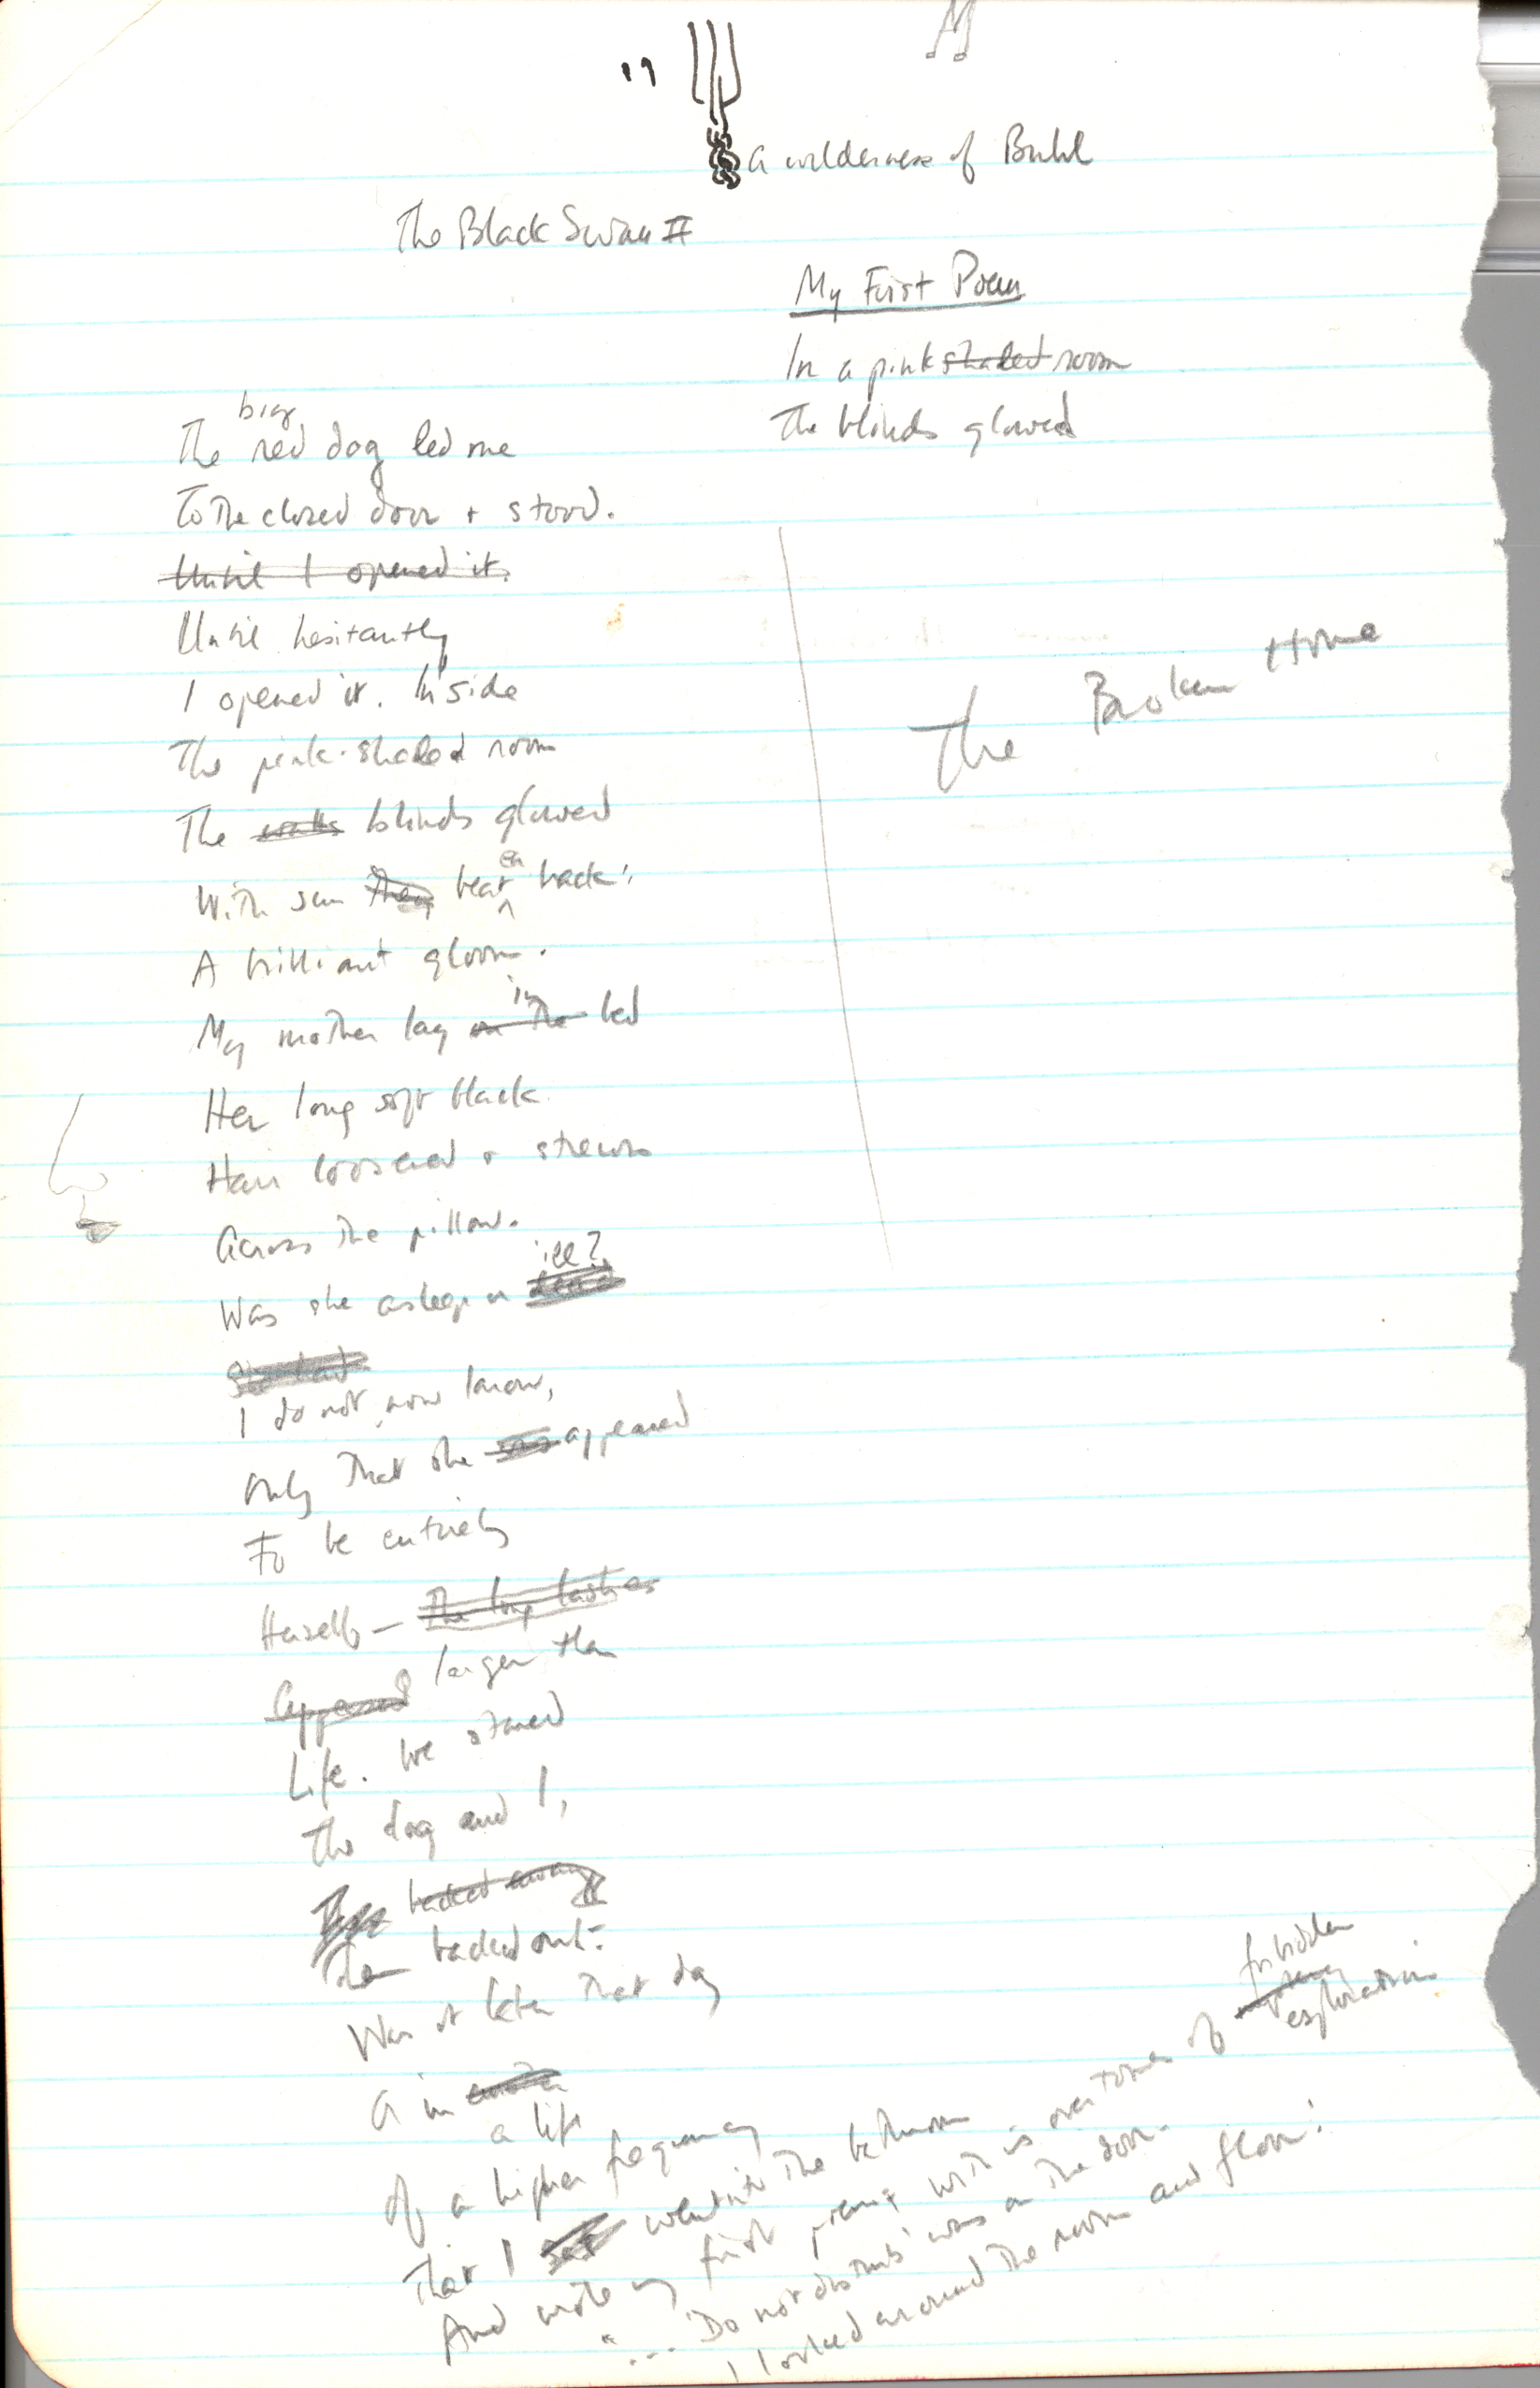 a wilderness of Buhl
The Black Swan II
My First Poem
In a pink shaded room
The blinds glowed
The Broken Home
big
The red dog led me
To the closed door + stood.
Until I opened it.
Until hesitantly
I opened it. Inside
The pink-shaded room
The walls blinds glowed
With sun they beaten back:
A brilliant gloom.
in
My mother lay on the bed
Her long soft black
Hair loosened + strewn
Across the pillow.
ill?
Was she asleep or
She had
I do not now know,
Only that she was appeared
To be entirely
Herself — The long lashes
Appeared larger than
Life. We stared
The dog and I,
backed away
Then backed out.
Was it later that day
a in
a life
Of a higher frequency
That I sat went into the bathroom
And wrote my first poem; with its overtones of forbidden exploration.
"... 'Do not disturb' was on the door.
I looked around the room and floor!